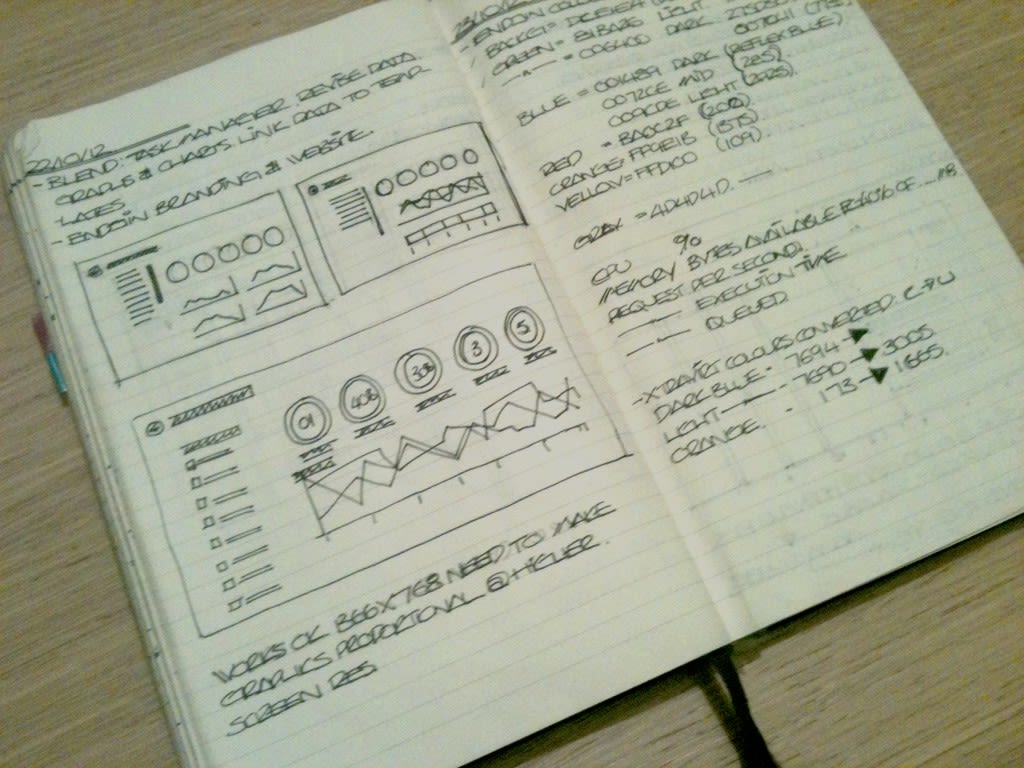 22/10/12
- BLEND: TASK MANAGER, REVISE DATA
GRAPHS & CHARTS. LINK DATA TO TEAR
LAGES.
- ENDSIN BRANDING & WEBSITE.
01 40% 30% 3 5
WORKS OK 1366X768 NEED TO MAKE
GRAPHICS PROPORTIONAL @ HIGHER.
SCREEN RES.
23/10/12
GREEN = LIGHT
006400 DARK
BLUE = 001489 DARK (REFLEX BLUE)
0072CE MID (285)
009CDE LIGHT (2925).
RED = BA0C2F (200)
ORANGE = FF6E1B (1575)
YELLOW = FFD100 (109).
GRAY = 4D4D4D.
CPU %
MEMORY BYTES AVAILABLE
REQUEST PER SECOND.
EXECUTION TIME
QUEUED
- XTRAVIRT COLOURS CONVERTED: C-PU
DARK BLUE - 7694 →
LIGHT - 7690 → 3005.
ORANGE. - 173 → 1665.